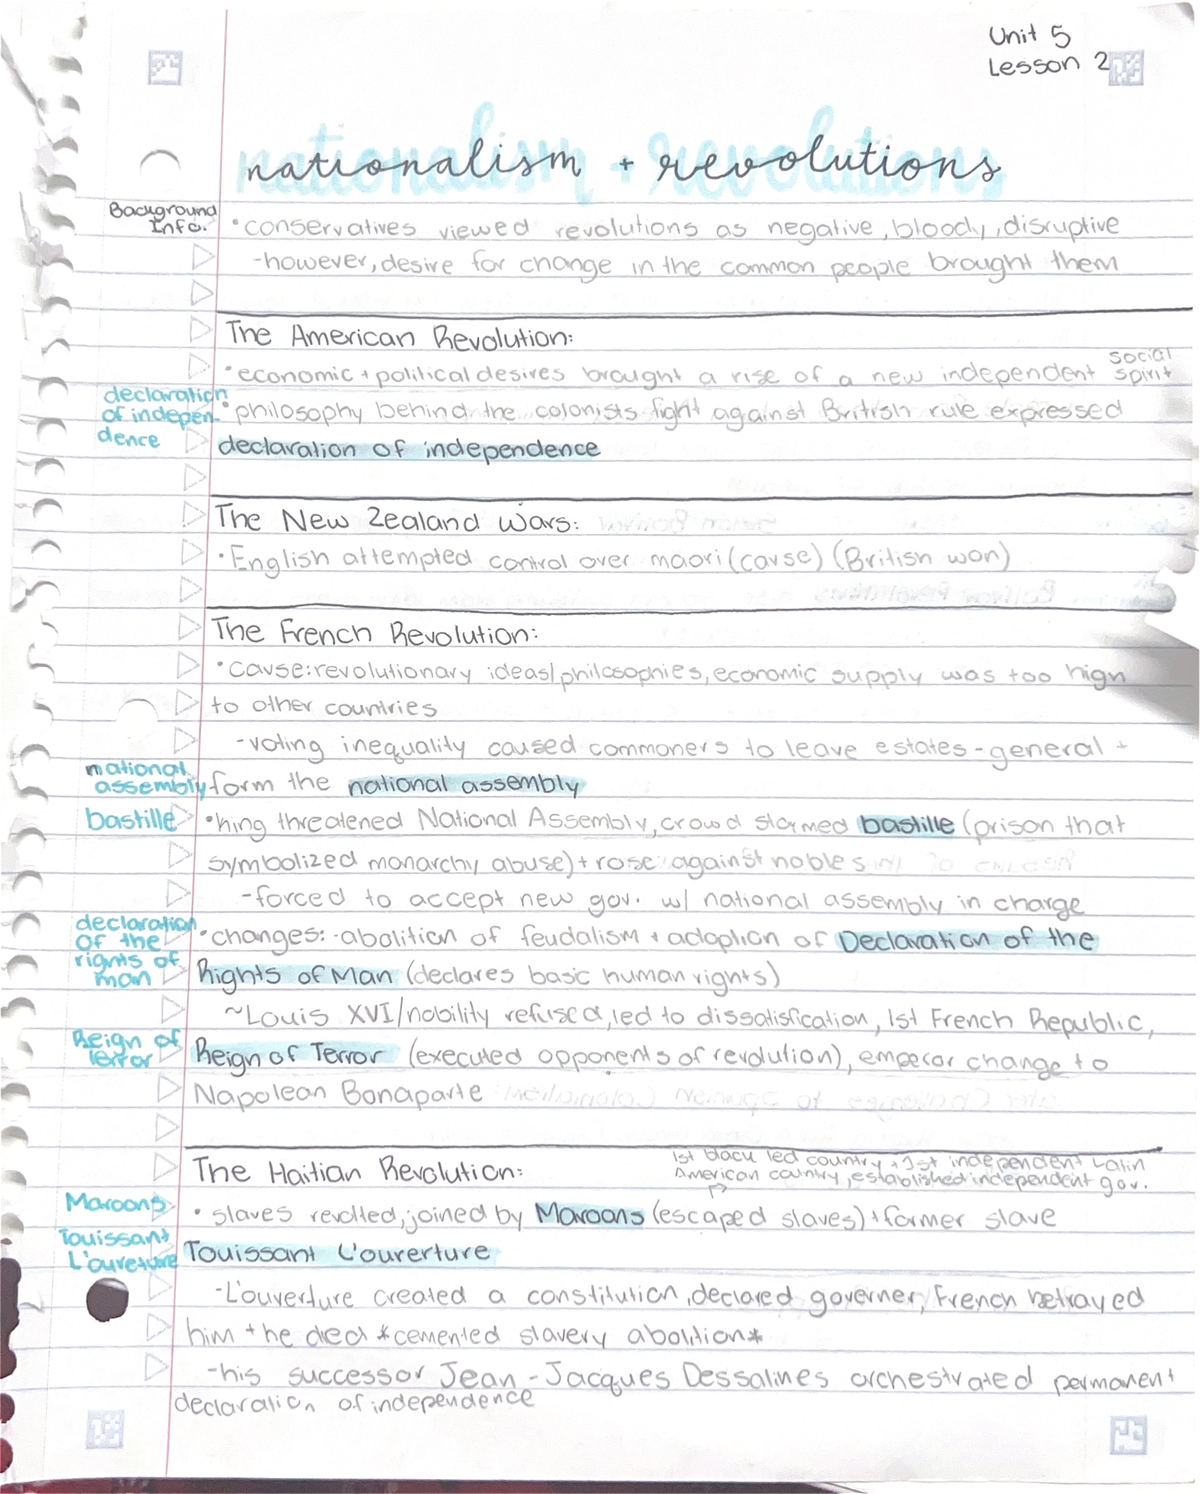 Unit 5
Lesson 2
nationalism + revolutions
Background
Info.
• conservatives viewed revolutions as negative, bloody, disruptive
-however, desire for change in the common people brought them
The American Revolution:
• economic + political desires brought a rise of a new independent social spirit
declaration
of indepen-
dence
• philosophy behind the colonists fight against British rule expressed
declaration of independence
The New Zealand Wars:
• English attempted control over maori (cause) (British won)
The French Revolution:
• cause: revolutionary ideas/philosophies, economic supply was too high
to other countries
-voting inequality caused commoners to leave estates-general +
national
assembly
form the national assembly
bastille
• king threatened National Assembly, crowd stormed bastille (prison that
symbolized monarchy abuse) + rose against nobles
-forced to accept new gov. w/ national assembly in charge
declaration
of the
rights of
man
• changes: -abolition of feudalism + adoption of Declaration of the
Rights of Man (declares basic human rights)
~Louis XVI/nobility refused, led to dissatisfication, 1st French Republic,
Reign of
Terror
Reign of Terror (executed opponents of revolution), emperor change to
Napolean Bonaparte
The Haitian Revolution:
1st black led country + 1st independent Latin
American country, established independent gov.
Maroons
• slaves revolted, joined by Maroons (escaped slaves) + former slave
Touissant
L'ouverture
Touissant L'ouverture
-L'ouverture created a constitution, declared governer, French betrayed
him + he died *cemented slavery abolition*
-his successor Jean-Jacques Dessalines orchestrated permanent
declaration of independence